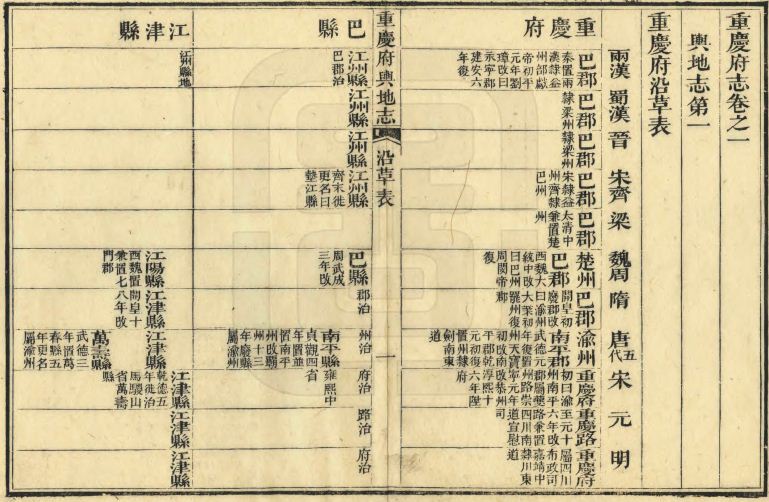 重慶府志卷之一
輿地志第一
重慶府沿革表
兩漢
蜀漢
晉
宋齊
梁
魏周
隋
唐五代
宋
元
明
重慶府
巴郡
秦置兩
漢隸益
州部獻
帝初平
元年劉
璋改曰
永寧郡
建安六
年復
巴郡
隸梁州
巴郡
隸梁州
巴郡
宋隸益
州齊隸
巴州
巴郡
太清中
兼置楚
州
楚州
巴郡
西魏大
統中改
曰巴州
周閔帝
復
巴郡
開皇初
廢郡改
曰渝州
大業初
罷州復
郡
渝州
南平郡
武德元
年復置
州天寶
初改南
平郡乾
元初復
置州隸
劍南東
道
重慶府
初曰渝
州南平
郡屬夔
州路崇
寧元年
改恭州
淳熙十
六年陞
府
重慶路
至元十
六年改
兼置四
川南道
宣慰司
重慶府
屬四川
布政司
嘉靖中
隸川東
道
重慶府輿地志
沿革表
一
巴縣
江州縣
巴郡治
江州縣
江州縣
江州縣
齊末徙
更名曰
墊江縣
巴縣
周武成
三年改
郡治
州治
南平縣
貞觀四
年置並
置南平
州改霸
州十三
年廢縣
屬渝州
府治
雍熙中
省
路治
府治
江津縣
江州縣地
江陽縣
西魏置
兼置七
門郡
江津縣
開皇十
八年改
江津縣
萬壽縣
武德三
年置萬
春縣五
年更名
屬渝州
江津縣
乾德五
年徙治
馬騣山
省萬壽
縣
江津縣
江津縣